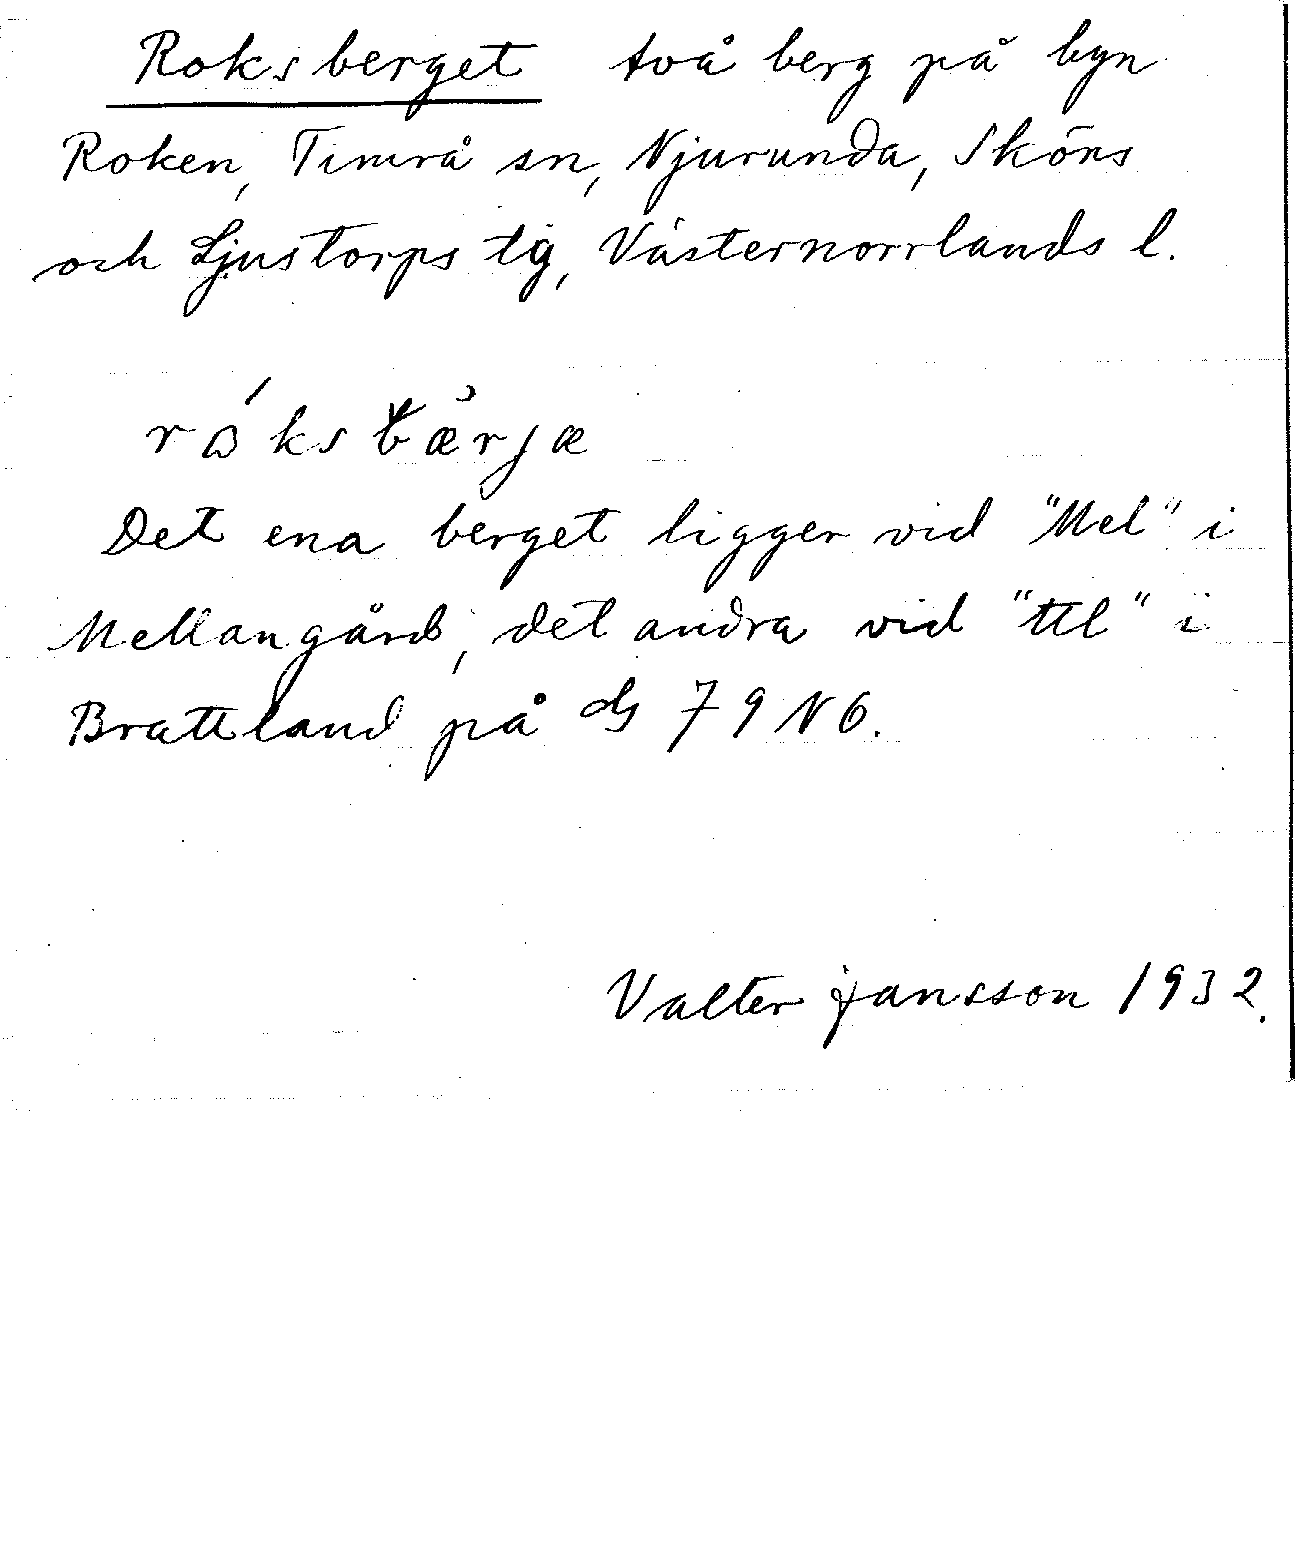 Roksberget två berg på byn
Roken, Timrå sn, Njurunda, Sköns
och Ljustorps tg, Västernorrlands l.
Det ena berget ligger vid "Mel" i
Mellangård, det andra vid "ttl" i
Brattland på 79 N6.
Valter Jansson 1932.